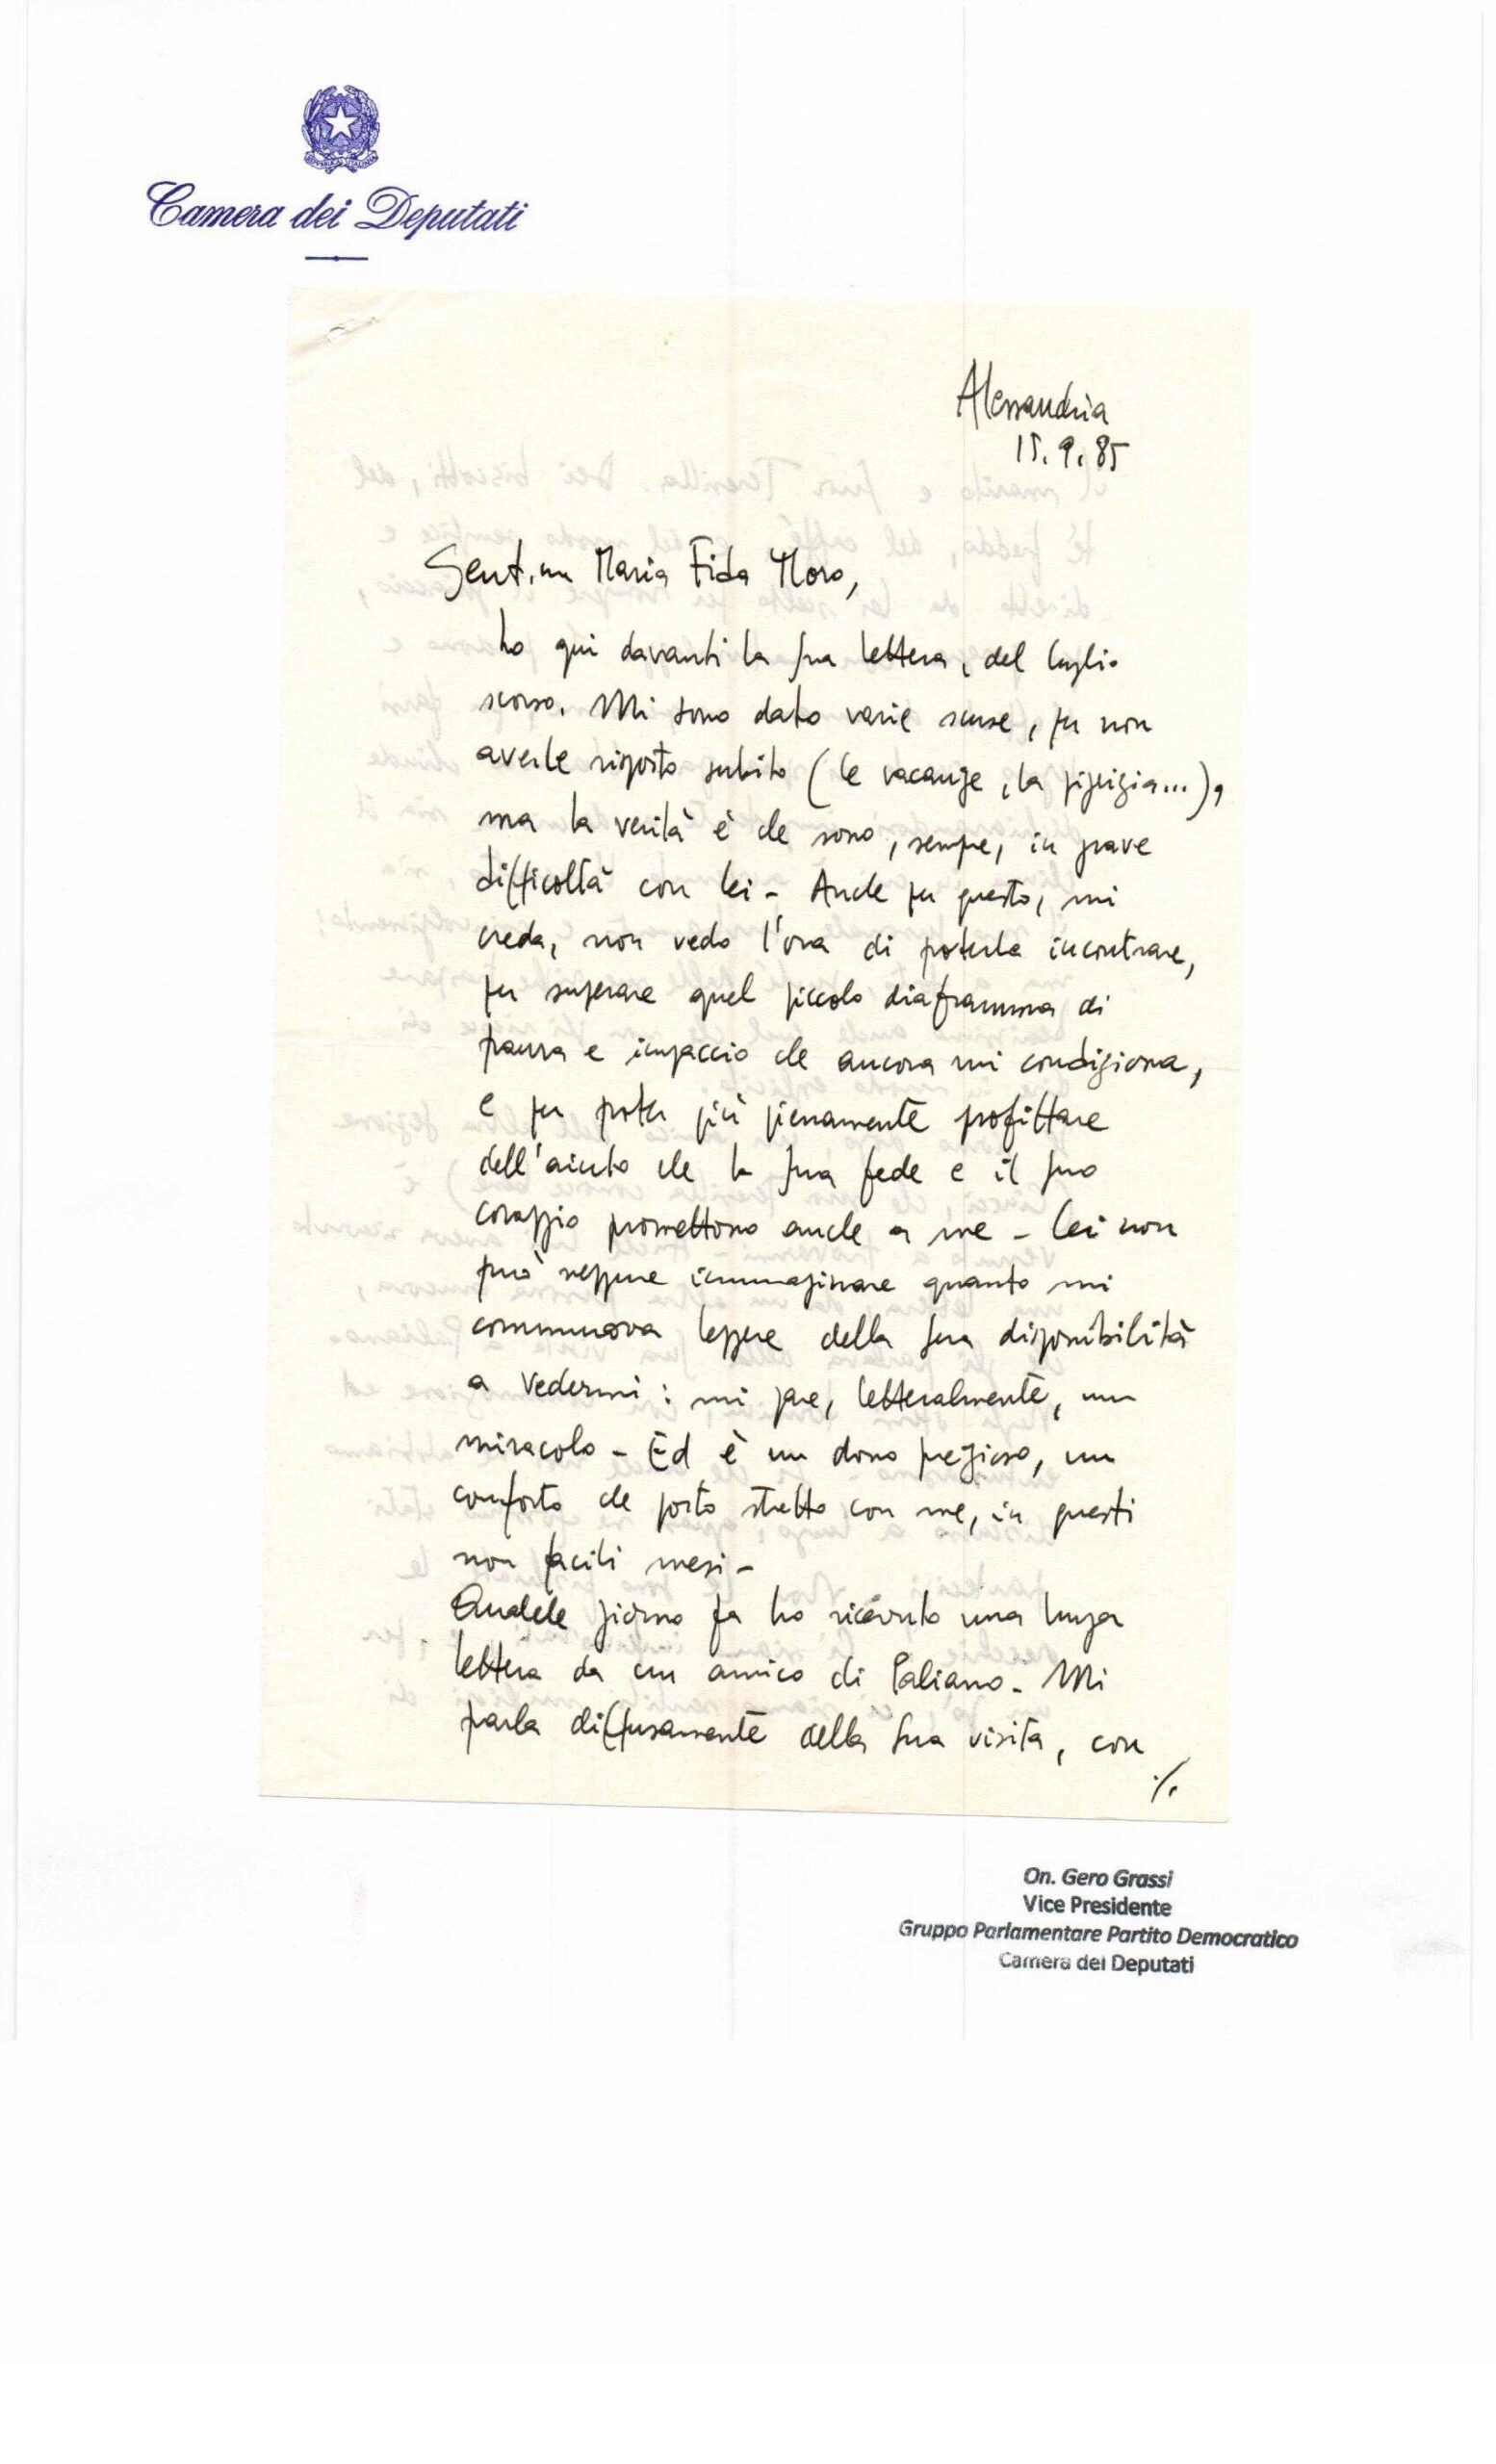 Camera dei Deputati
Alessandria
15.9.85
Gent.ma Maria Fida Moro,
ho qui davanti la Sua lettera, del luglio
scorso. Mi sono dato varie scuse, per non
averle risposto subito (le vacanze, la pigrizia...),
ma la verità è che sono, sempre, in grave
difficoltà con lei - Anche per questo, mi
creda, non vedo l'ora di poterla incontrare,
per superare quel piccolo diaframma di
paura e impaccio che ancora mi condiziona,
e per poter più pienamente profittare
dell'aiuto che la Sua fede e il Suo
coraggio promettono anche a me - Lei non
può neppure immaginare quanto mi
commuova leggere della Sua disponibilità
a vedermi: mi pare, letteralmente, un
miracolo - Ed è un dono prezioso, un
conforto che porto stretto con me, in questi
non facili mesi -
Qualche giorno fa ho ricevuto una lunga
lettera da un amico di Paliano - Mi
parla diffusamente della Sua visita, con
./.
On. Gero Grassi
Vice Presidente
Gruppo Parlamentare Partito Democratico
Camera dei Deputati